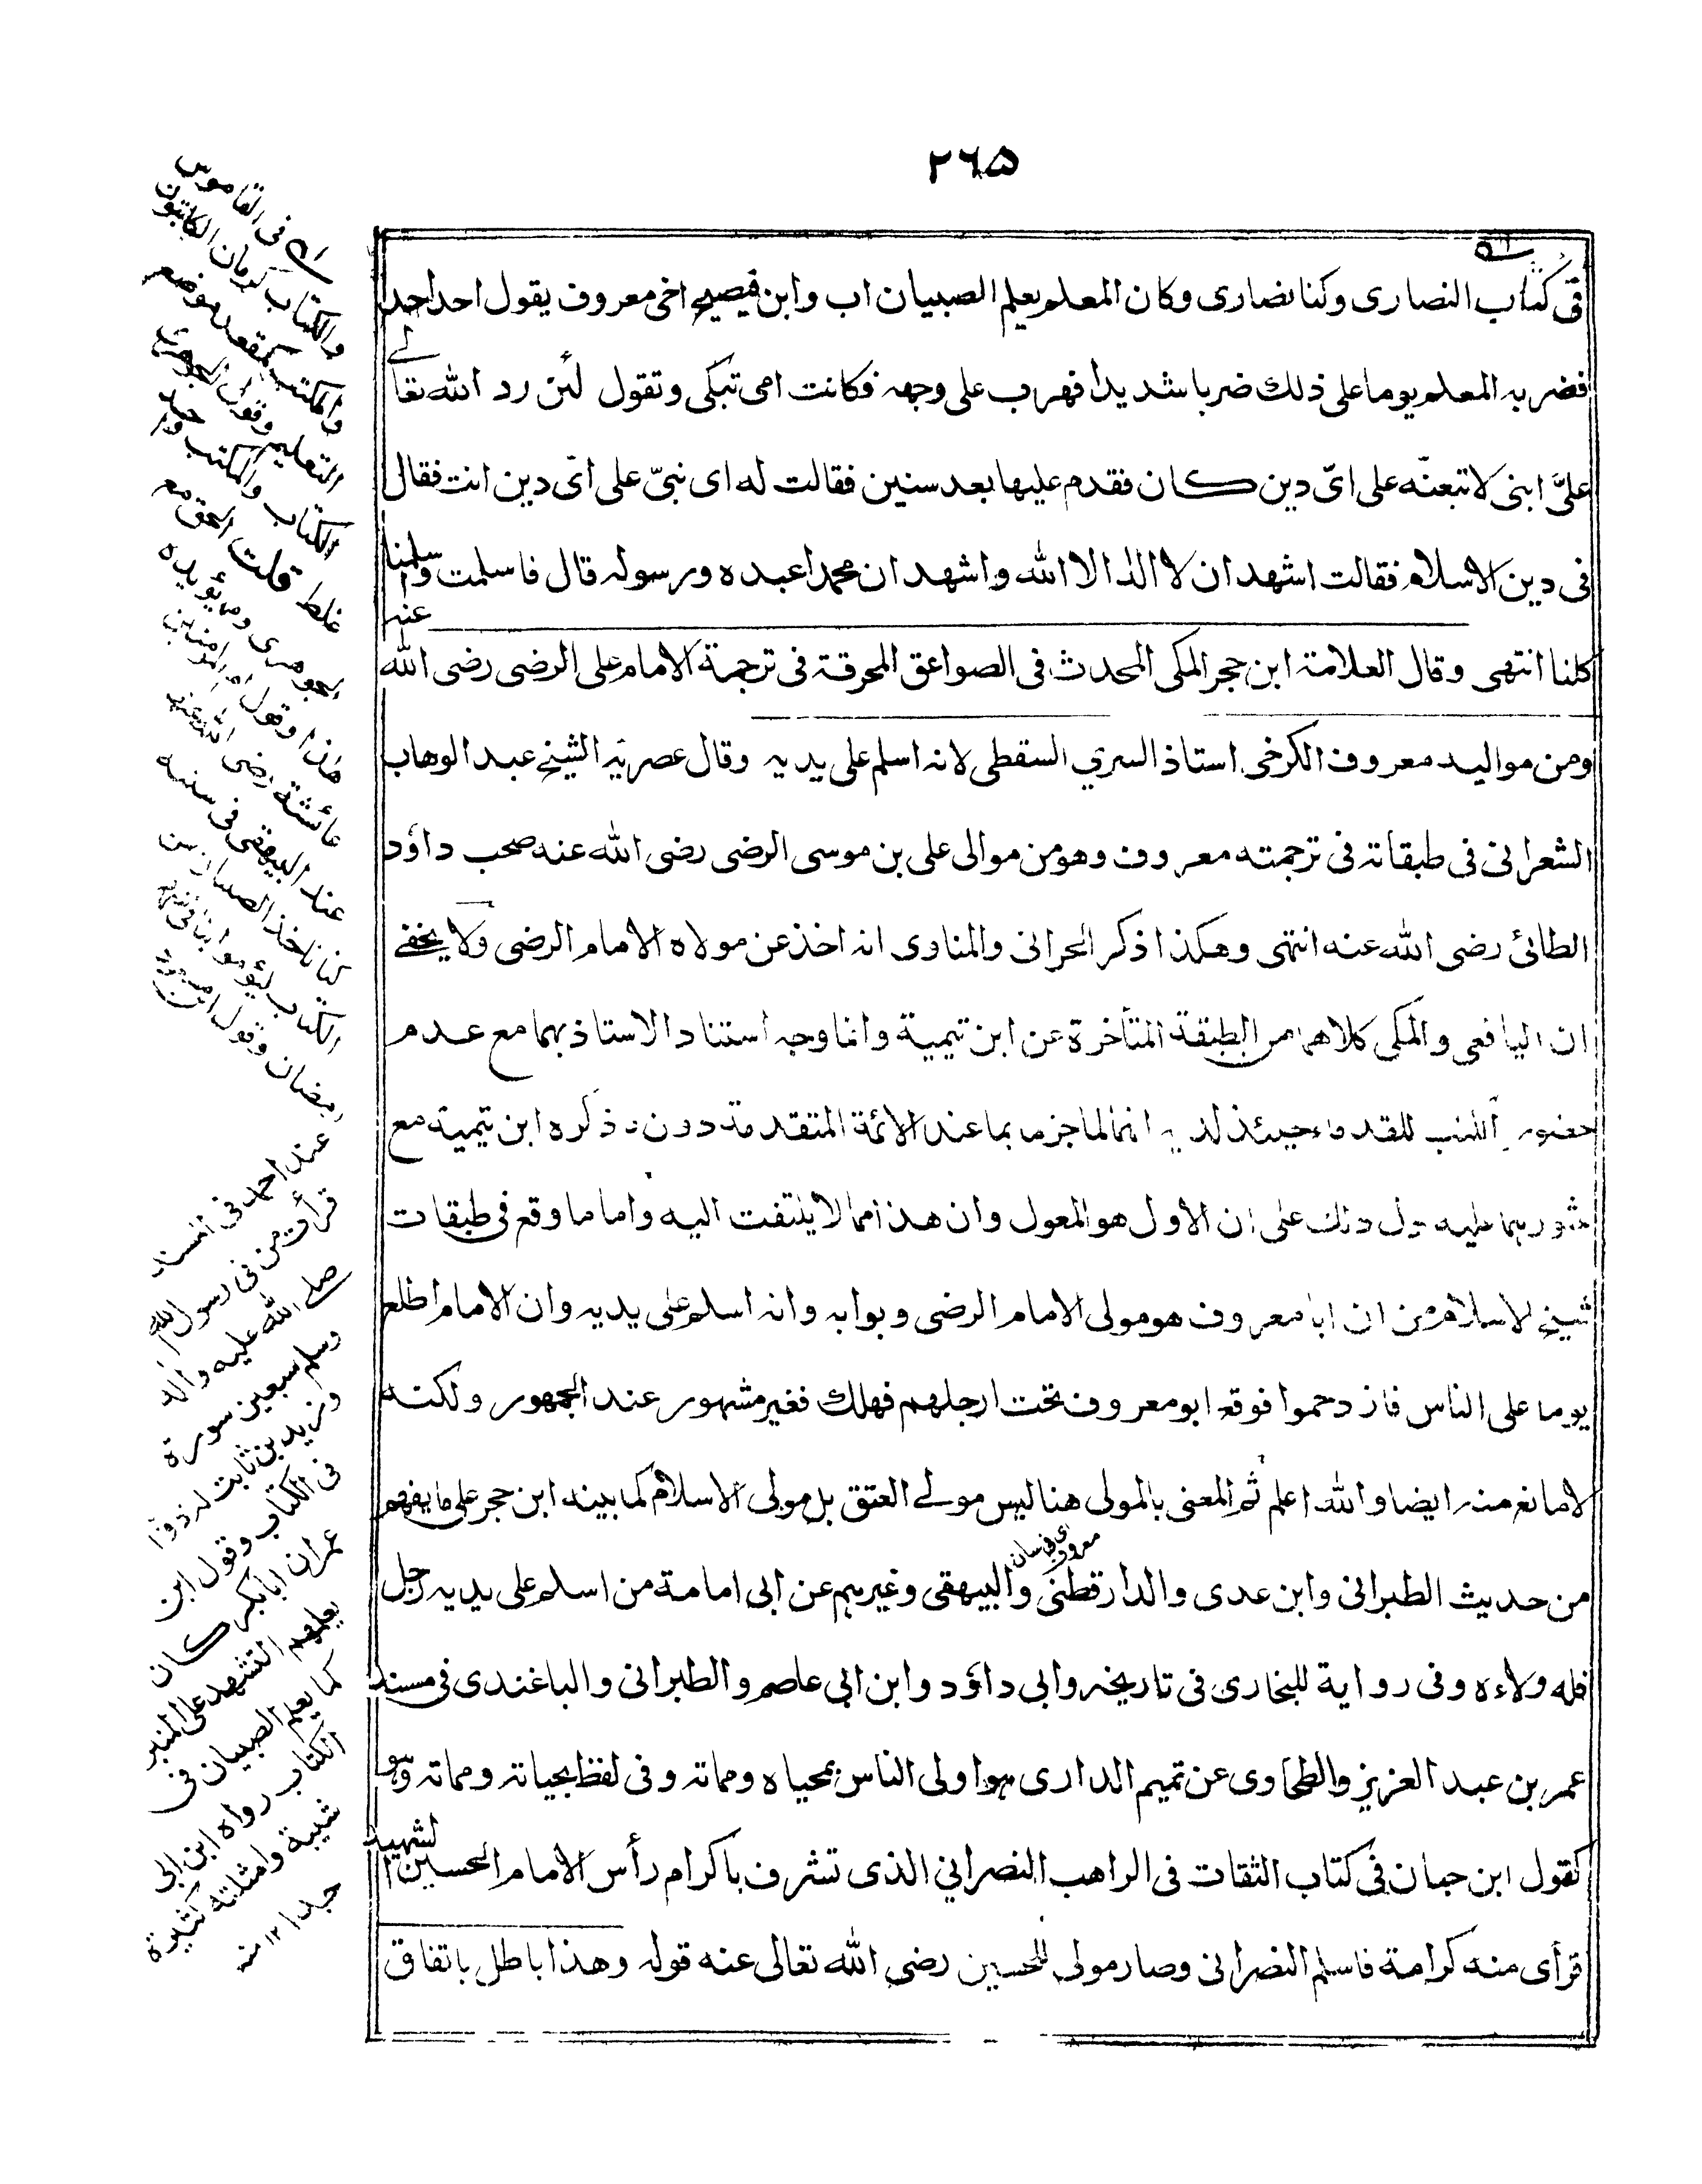 ٢٦٥
فى كتاب النصارى وكنا نصارى وكان المعلم يعلم الصبيان اب وابن فيصيح اخى معروف يقول احد احد
فضربه المعلم يوما على ذلك ضربا شديدا فهرب على وجهه فكانت امى تبكى وتقول لئن رد الله تعالے
علىّ ابنى لاتبعنّه على اىّ دين كان فقدم عليها بعد سنين فقالت له اى نبىّ على اىّ دين انت فقال
فى دين الاسلام فقالت اشهد ان لا اله الا الله واشهد ان محمدا عبده ورسوله قال فاسلمت واسلمنا
كلنا انتهى وقال العلامة ابن حجر المكى المحدث فى الصواعق المحرقة فى ترجمة الامام على الرضى رضى الله عنه
ومن مواليد معروف الكرخى استاذ السري السقطى لانه اسلم على يديه وقال عصريّه الشيخ عبد الوهاب
الشعرانى فى طبقاته فى ترجمته معروف وهو من موالى على بن موسى الرضى رضى الله عنه صحب داؤد
الطائى رضى الله عنه انتهى وهكذا ذكر الحرانى والمناوى انه اخذ عن مولاه الامام الرضى ولا يخفے
ان اليافعى والمكى كلاهما من الطبقة المتأخرة عن ابن تيمية وانما وجه استناد الاستاذ بهما مع عدم
حضور الكتب للقدماء حينئذ لديه انهما لما جزما بما عند الائمة المتقدمة دون ذكره ابن تيمية مع
عثورهما عليه دل ذلك على ان الاول هو المعول وان هذا مما لا يلتفت اليه واما ما وقع فى طبقات
شيخ الاسلام من ان ابا معروف هو مولى الامام الرضى وبوابه وانه اسلم على يديه وان الامام اطلع
يوما على الناس فازدحموا فوقع ابو معروف تحت ارجلهم فهلك فغير مشهور عند الجمهور ولكنه
لا مانع منه ايضا والله اعلم ثم المعنى بالمولى هنا ليس مولے العتق بل مولى الاسلام كما بينه ابن حجر على ما يفهم
من حديث الطبرانى وابن عدى والدارقطنى والبيهقى وغيرهم عن ابى امامة من اسلم على يديه رجل
فله ولاءه وفى رواية للبخارى فى تاريخه وابى داؤد وابن ابى عاصم والطبرانى والباغندى فى مسند
عمر بن عبد العزيز والطحاوى عن تميم الدارى هو اولى الناس بمحياه ومماته وفى لفظ بحياته ومماته وهو
كقول ابن حبان فى كتاب الثقات فى الراهب النصراني الذى تشرف باكرام رأس الامام الحسين الشهيد
فرأى منه كرامة فاسلم النصرانى وصار مولى للحسين رضى الله تعالى عنه قوله وهذا باطل باتفاق
فى القاموس
والكتاب كرمان الكاتبون
والمكتب كمقعد موضع
التعليم وقول الجوهرى
الكتاب والمكتب واحد
غلط قلت الحق مع
الجوهرى ومما يؤيده
هذا وقول ام المؤمنين
عائشة رضى الله عنها
عند البيهقى فى سننه
كنا ناخذ الصبيان من
الكتاب ليقوموا بنا فى شهر
رمضان وقول ابن مسعود
عند احمد فى المسند
قرأت من فى رسول الله
صلے الله عليه واله
وسلم سبعين سورة
وزيد بن ثابت له ذؤابة
فى الكتاب وقول ابن
عمر ان ابا بكر كان
يعلمهم التشهد على المنبر
كما يعلم الصبيان فى
الكتاب رواه ابن ابى
شيبة وامثلته كثيرة
جدا ١٢ منه